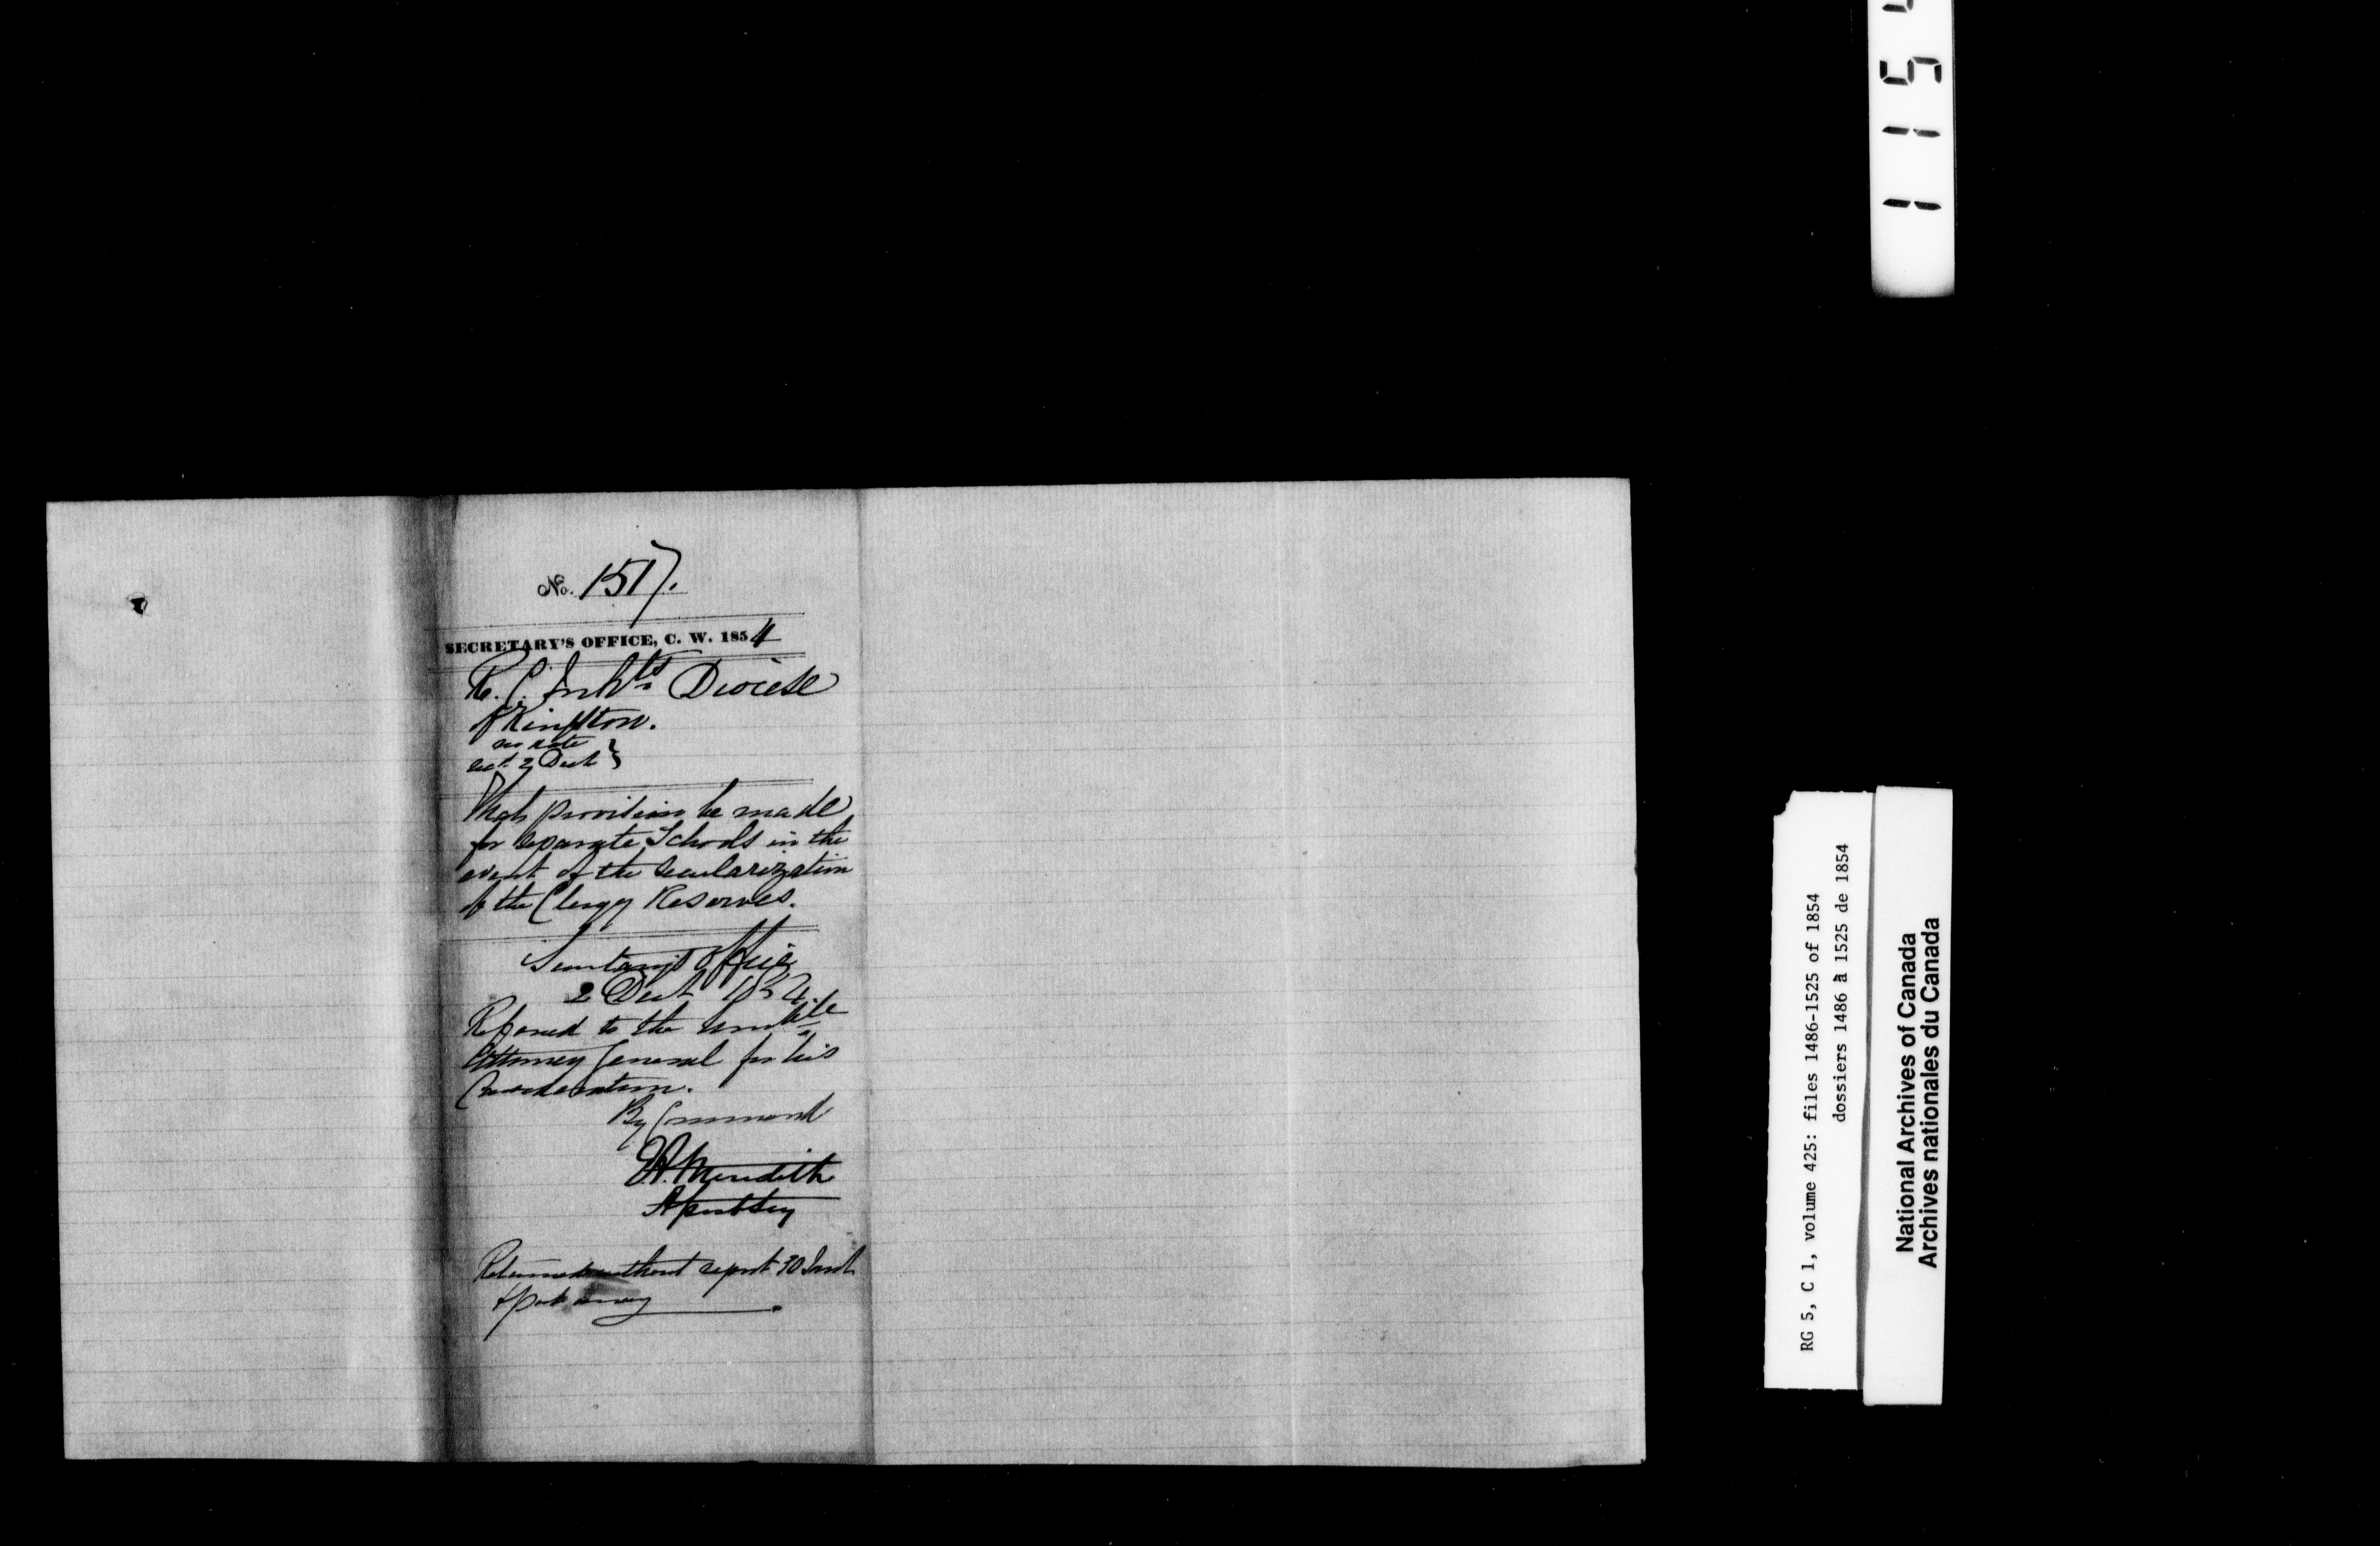 No. 1517.
SECRETARY'S OFFICE, C. W. 1854
R. C. Inhts Diocese
of Kingston.
no date
rect. 2 Sept
That provision be made
for separate Schools in the
event of the secularization
of the Clergy Reserves.
Secretary's Office
2 Sept 1854.
Referred to the Honble
Attorney General for his
Consideration.
By Command
E.A. Meredith
Asst Secy
Returned without report 30
& put away
1 1 5
RG 5, C 1, volume 425: files 1486-1525 of 1854
dossiers 1486 à 1525 de 1854
National Archives of Canada
Archives nationales du Canada